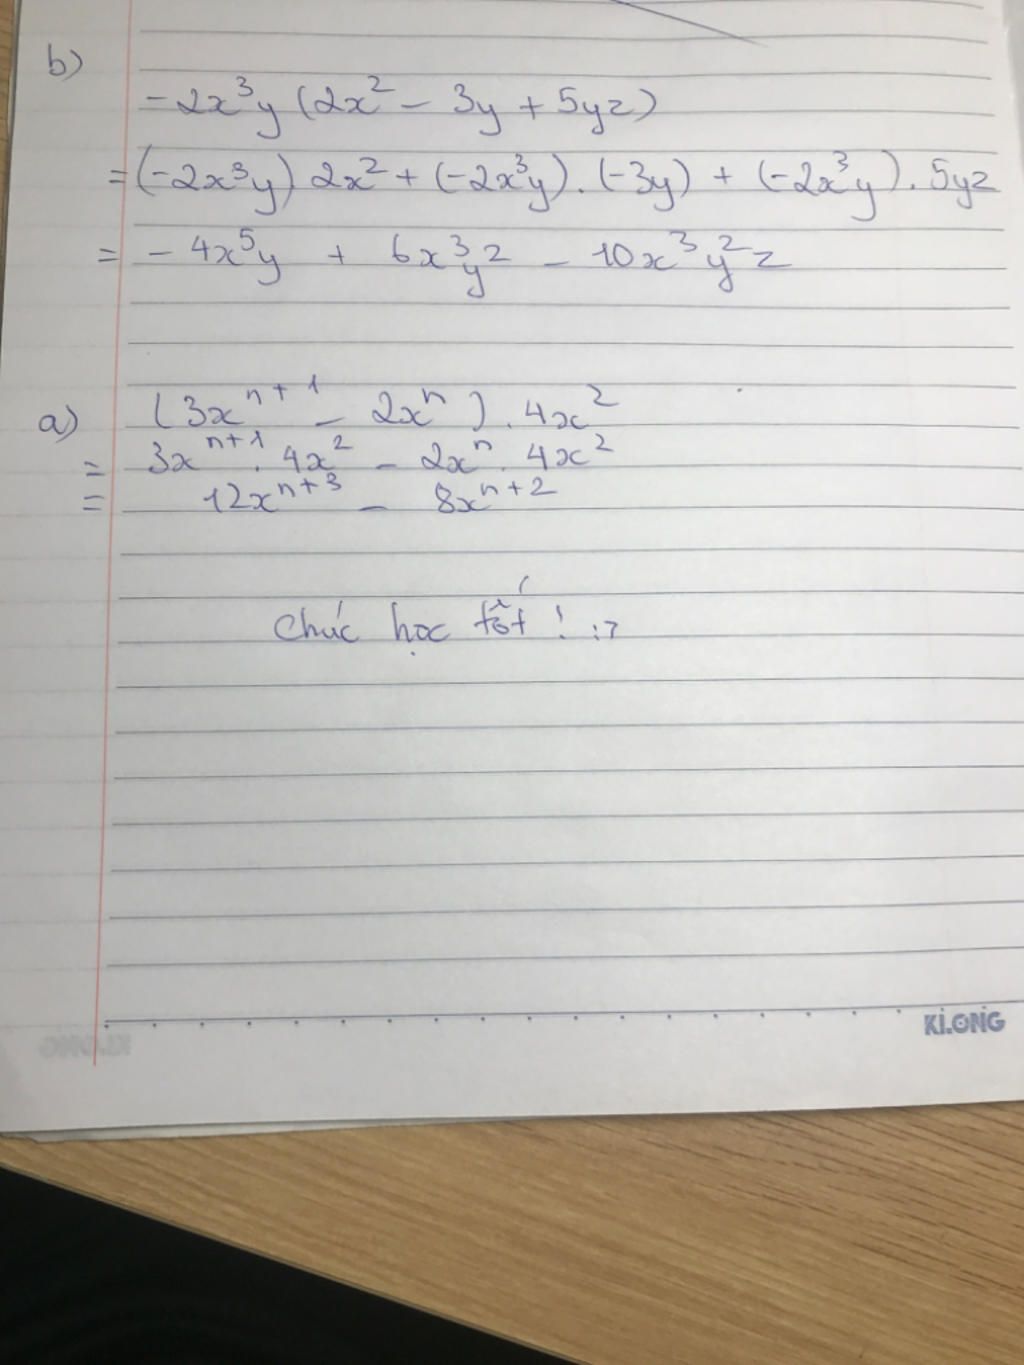 b)
-2x³y (2x² - 3y + 5yz)
= (-2x³y) 2x² + (-2x³y) . (-3y) + (-2x³y) . 5yz
= - 4x⁵y + 6x³y² - 10x³y²z
a) (3xⁿ⁺¹ - 2xⁿ) . 4x²
= 3xⁿ⁺¹ . 4x² - 2xⁿ . 4x²
= 12xⁿ⁺³ - 8xⁿ⁺²
Chúc học tốt ! :7
KLONG